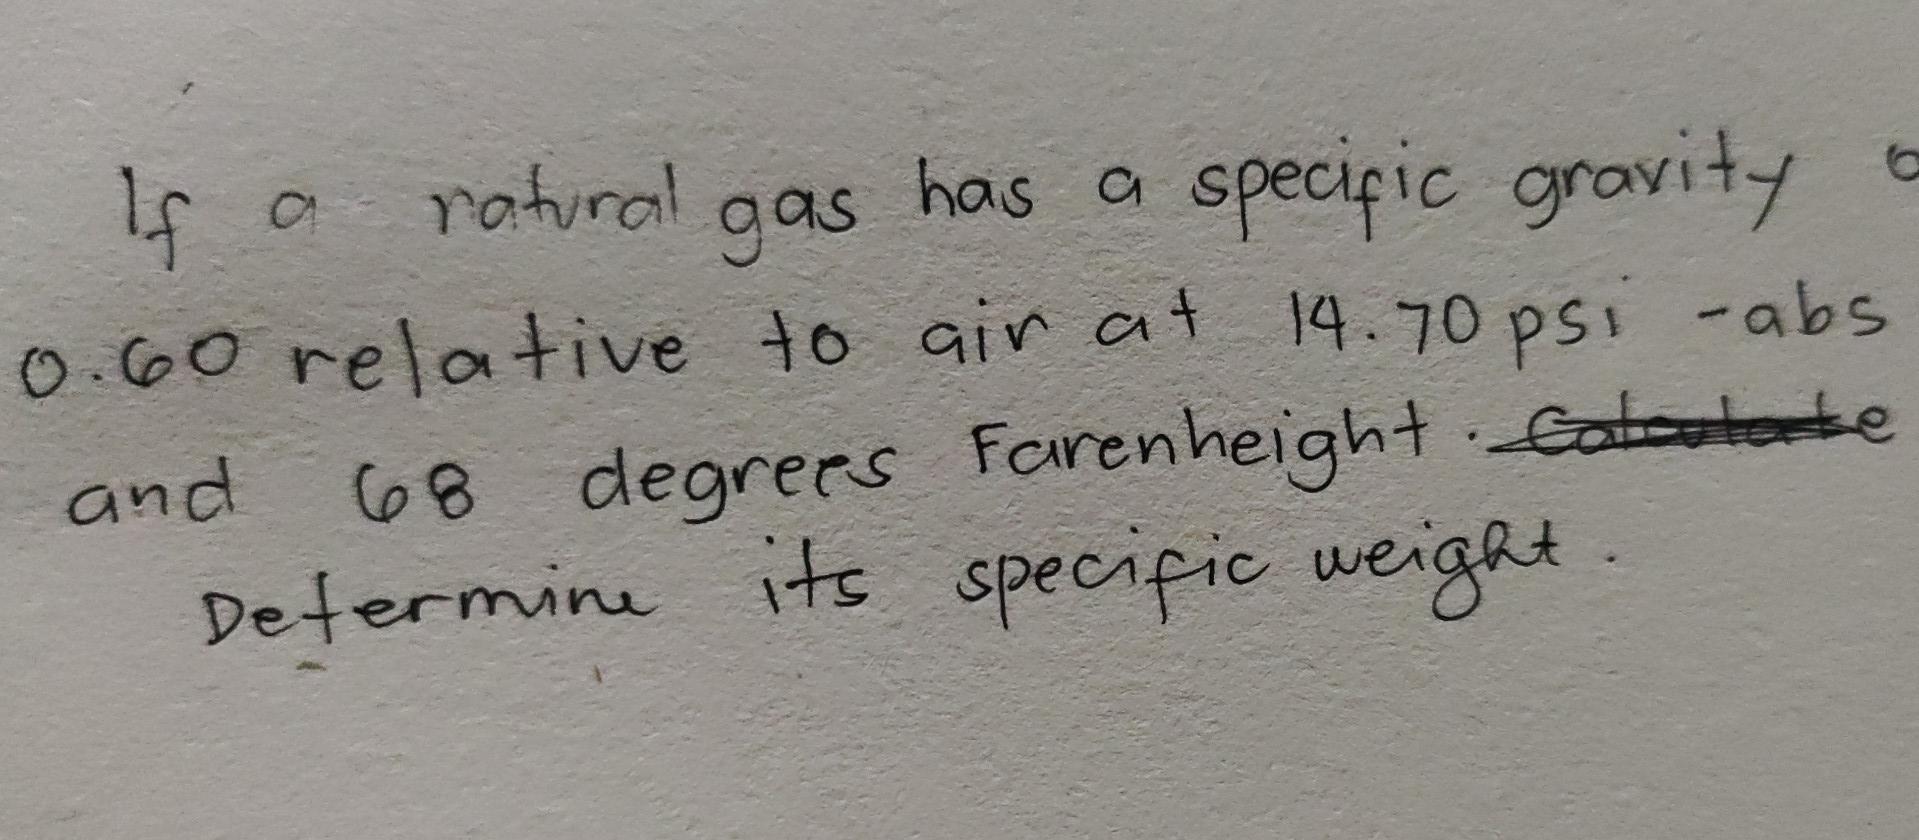 If a natural gas has a specific gravity o
0.60 relative to air at 14.70 psi -abs
and 68 degrees Farenheight. Calculate
Determine its specific weight.